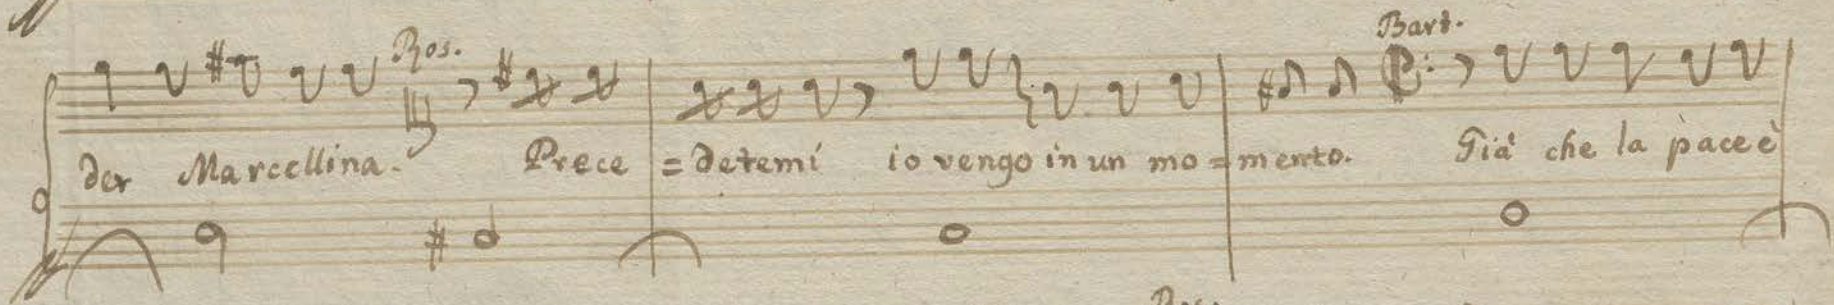 Ros. Bart.
der Marcellina. Prece = detemi io vengo in un mo = mento. Già che la pace è